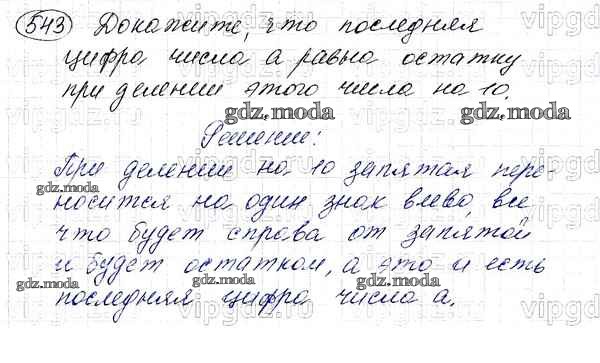 543 Докажите, что последняя
цифра числа а равна остатку
при делении этого числа на 10.
gdz.moda gdz.moda
Решение:
При делении на 10 запятая пере-
gdz.moda
носится на один знак влево, все
что будет справа от запятой
и будет остатком, а это и есть
gdz.moda
последняя цифра числа а.